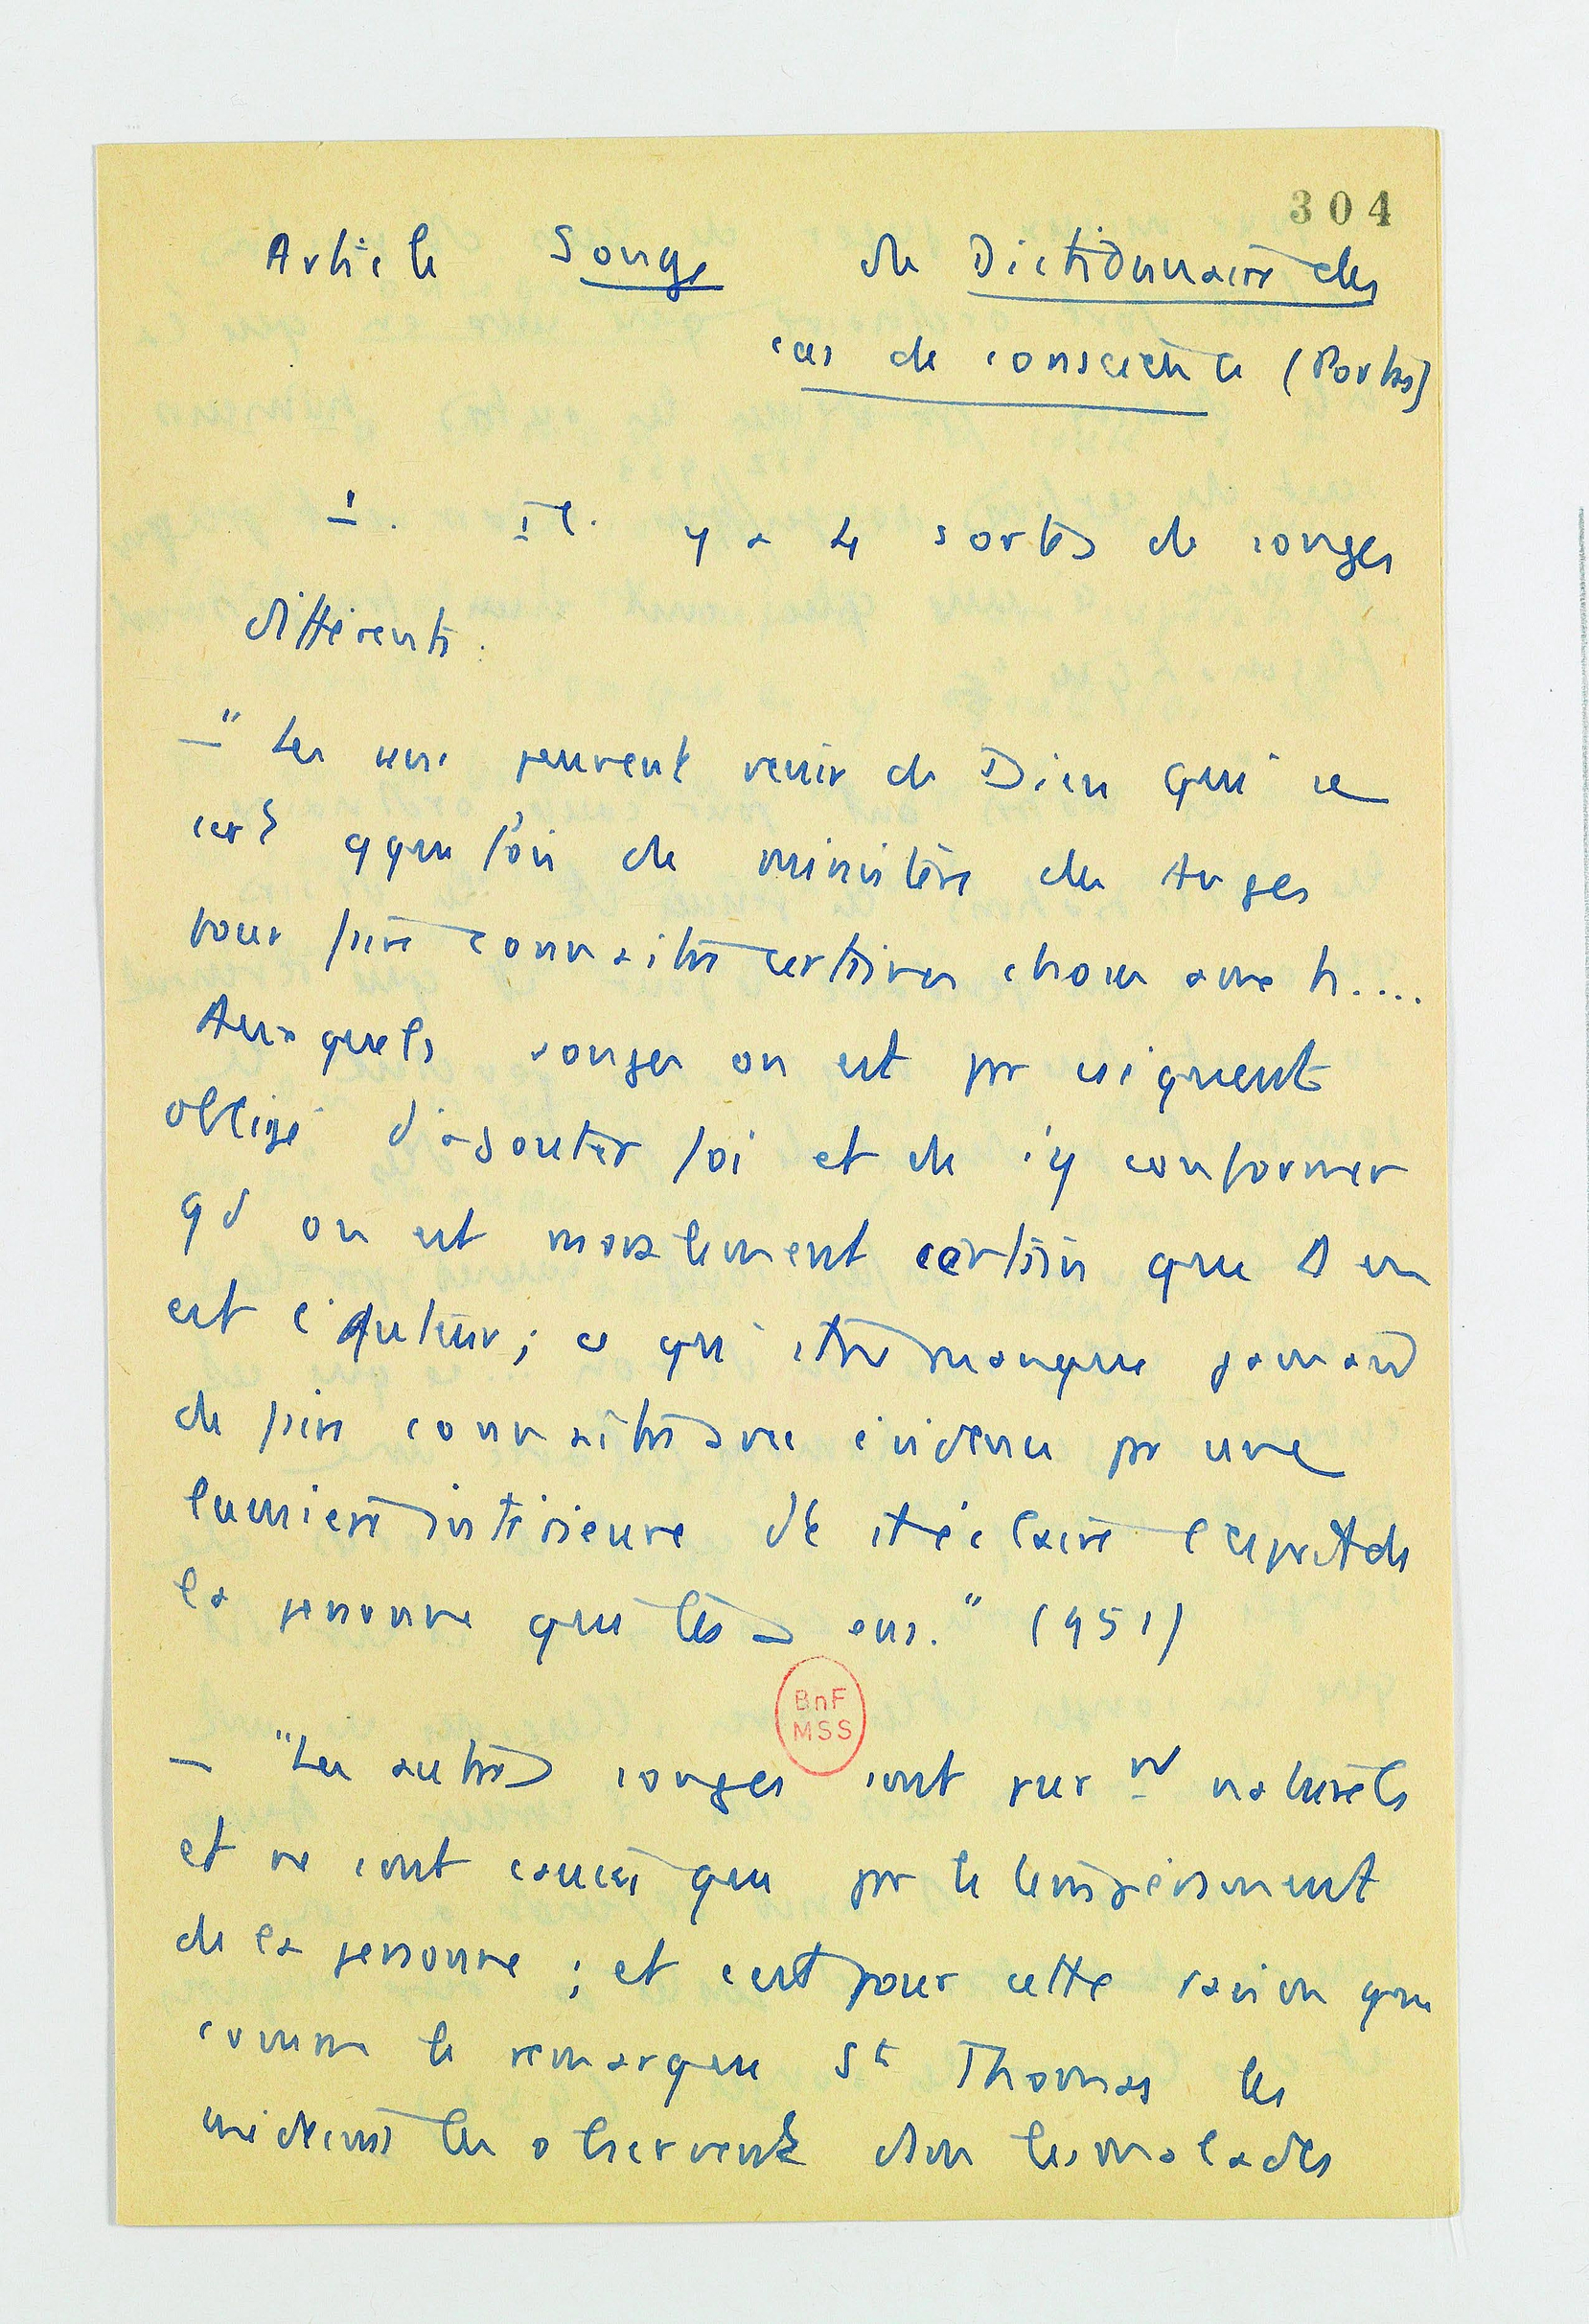 304
Article Songe de Dictionnaire des
cas de conscience (Pontas)
I. Il y a 4 sortes de songes
différents.
— "Les uns peuvent venir de Dieu qui se
sert qque fois de ministère des Anges
pour faire connaître certaines choses aux h....
Auxquels songes on est par csiquent
obligé d'ajouter foi et de s'y conformer
qd on est moralement certain que D en
est l'Auteur; ce qui ne manque jamais
de faire connaître avec évidence par une
lumière intérieure dt il éclaire l'esprit de
la personne qui les a eus." (951)
BnF
MSS
— "Les autres songes sont purnt naturels
et ne sont causés que par le tempérament
de la personne; et c'est pour cette raison que
comme le remarque St Thomas les
médecins les observent dans les malades